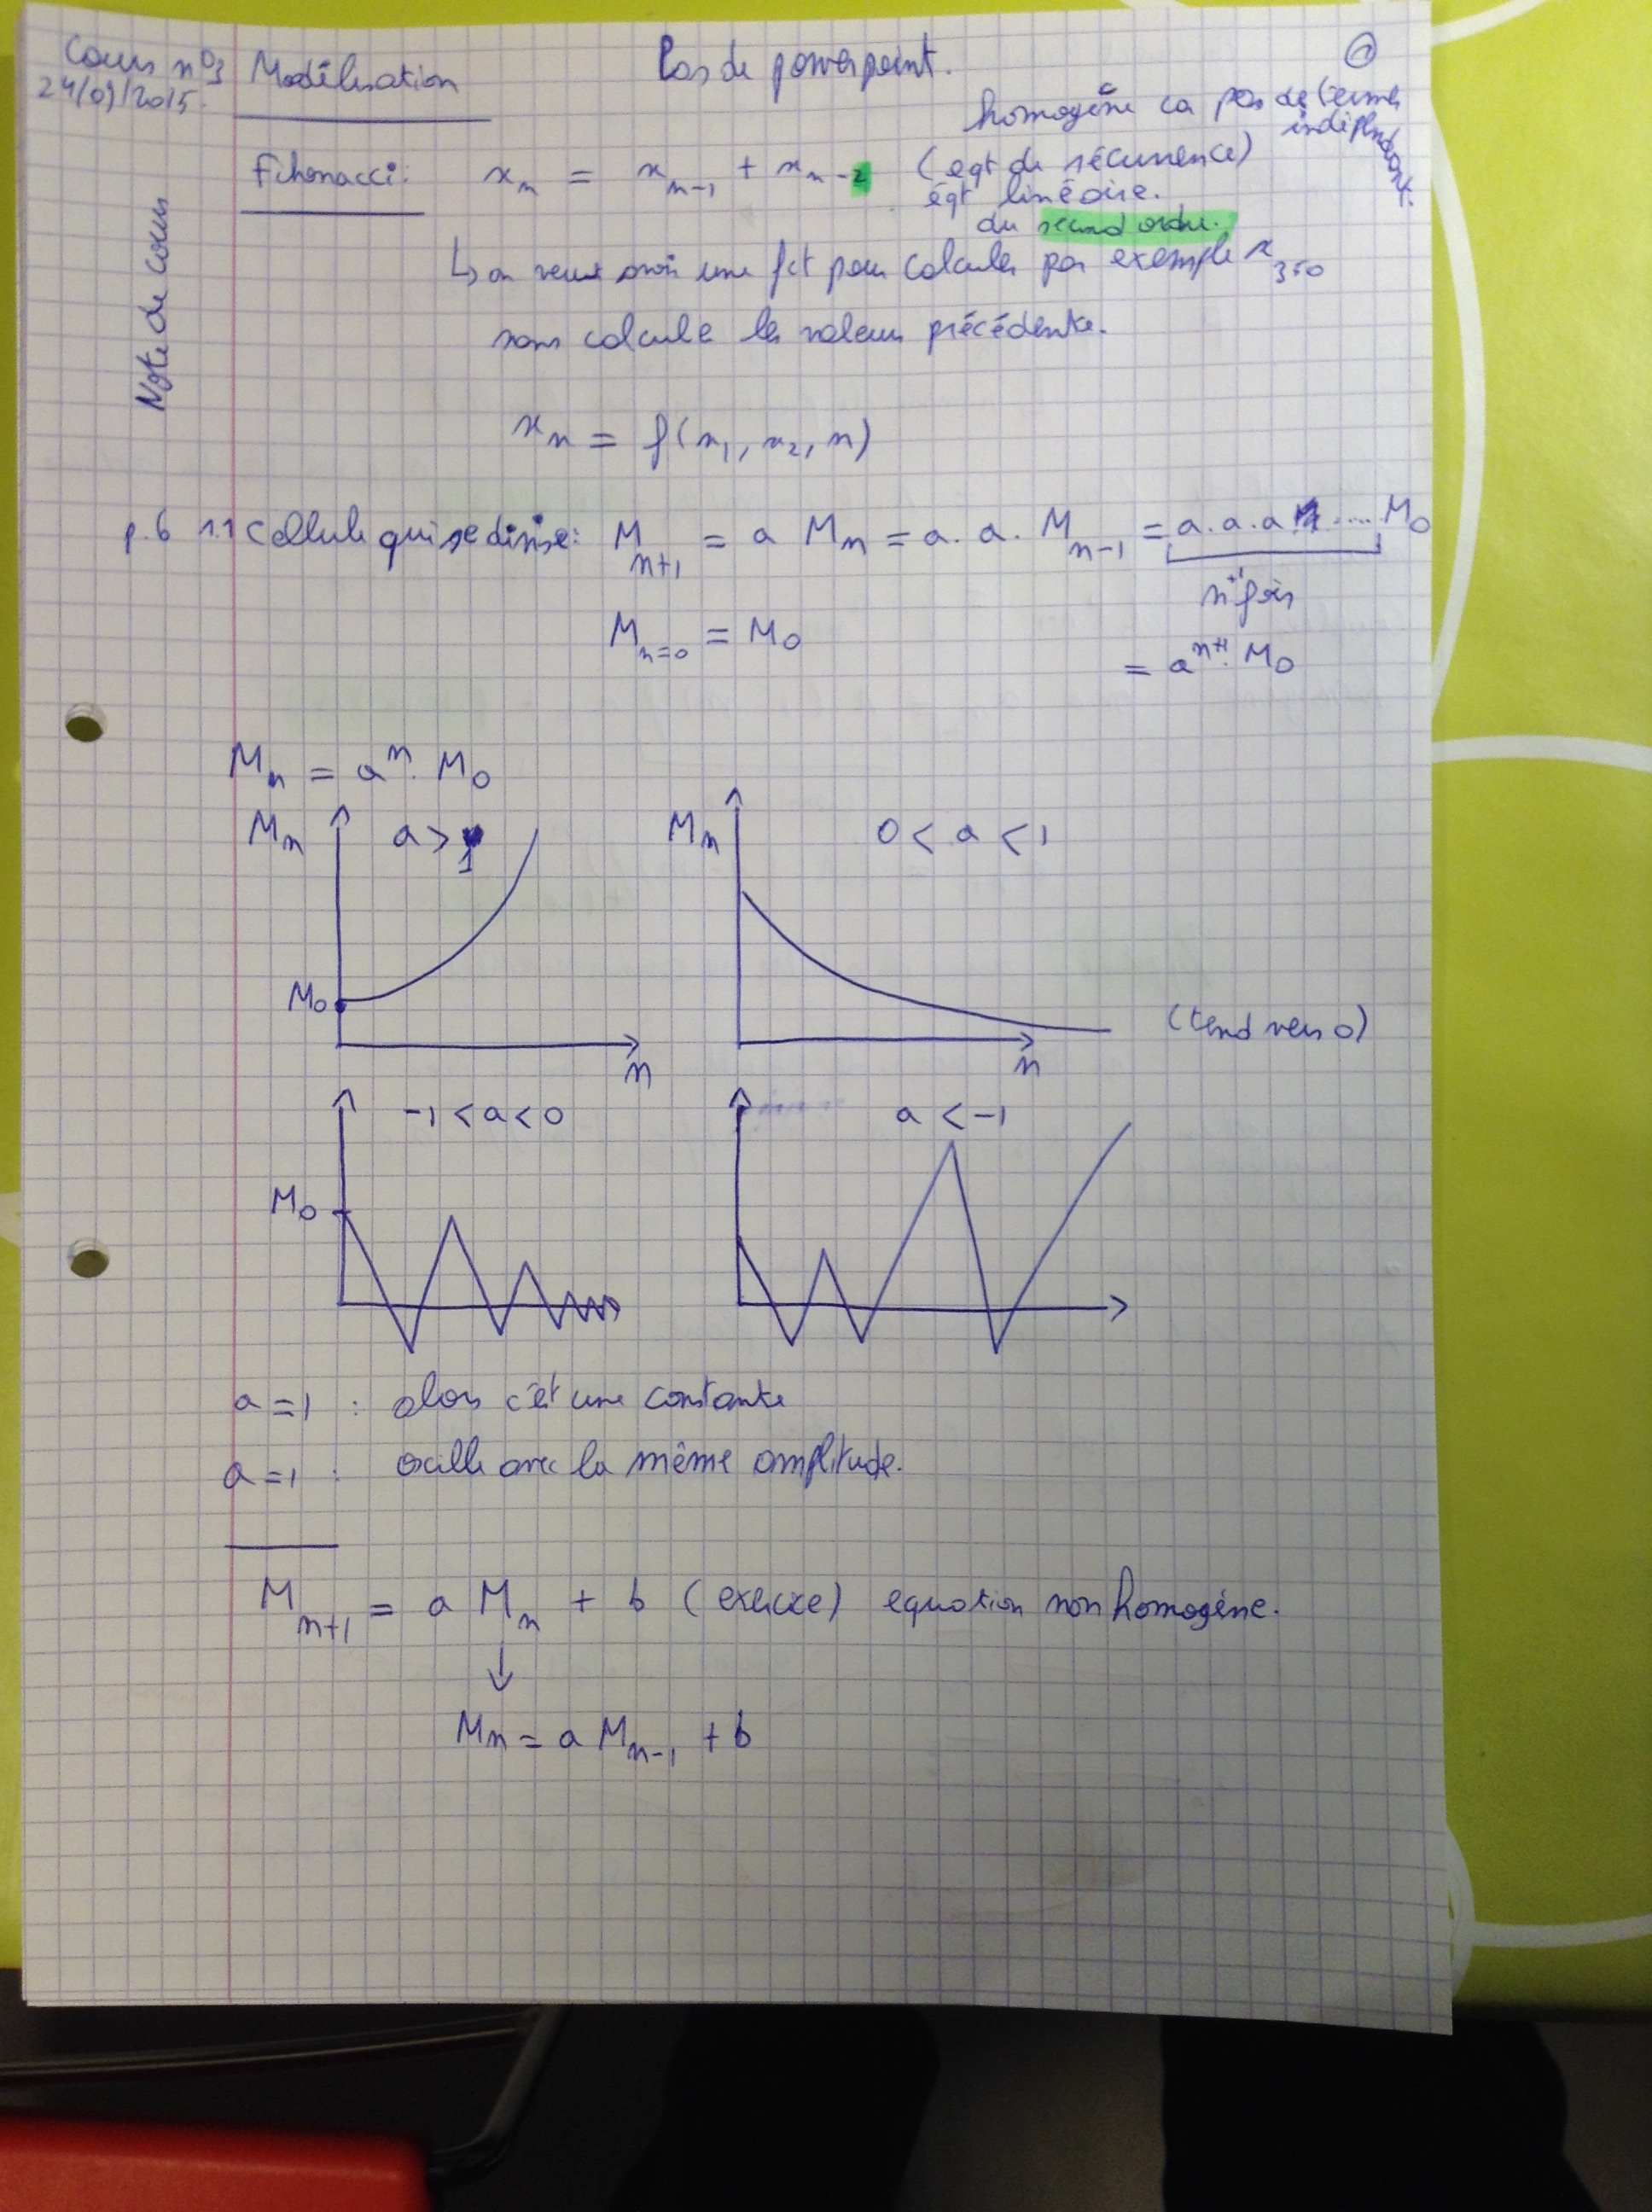 Cours n°3 Modélisation Pas de powerpoint. 1
24/09/2015.
homogène ca pas de termes
indépendant.
Fibonacci: xₙ = xₙ₋₁ + xₙ₋₂ (eqt de récurrence)
éqt linéaire.
du second ordre.
Note de cours
↳ on veut avoir une fct pour calculer par exemple x₃₅₀
sans calculer les valeurs précédente.
xₙ = f(x₁, x₂, n)
p.6 1.1 Cellule qui se divise: Mₙ₊₁ = a Mₙ = a. a. Mₙ₋₁ = a. a. a ..... M₀
n+1 fois
Mₙ₌₀ = M₀
= aⁿ⁺¹. M₀
Mₙ = aⁿ. M₀
Mₙ a > 1 Mₙ 0 < a < 1
M₀ (tend vers 0)
n n
-1 < a < 0 a < -1
M₀
a = 1 : alors c'est une constante
a = 1 : oscille avec la même amplitude.
Mₙ₊₁ = a Mₙ + b (exercice) equation non homogène.
↓
Mₙ = a Mₙ₋₁ + b